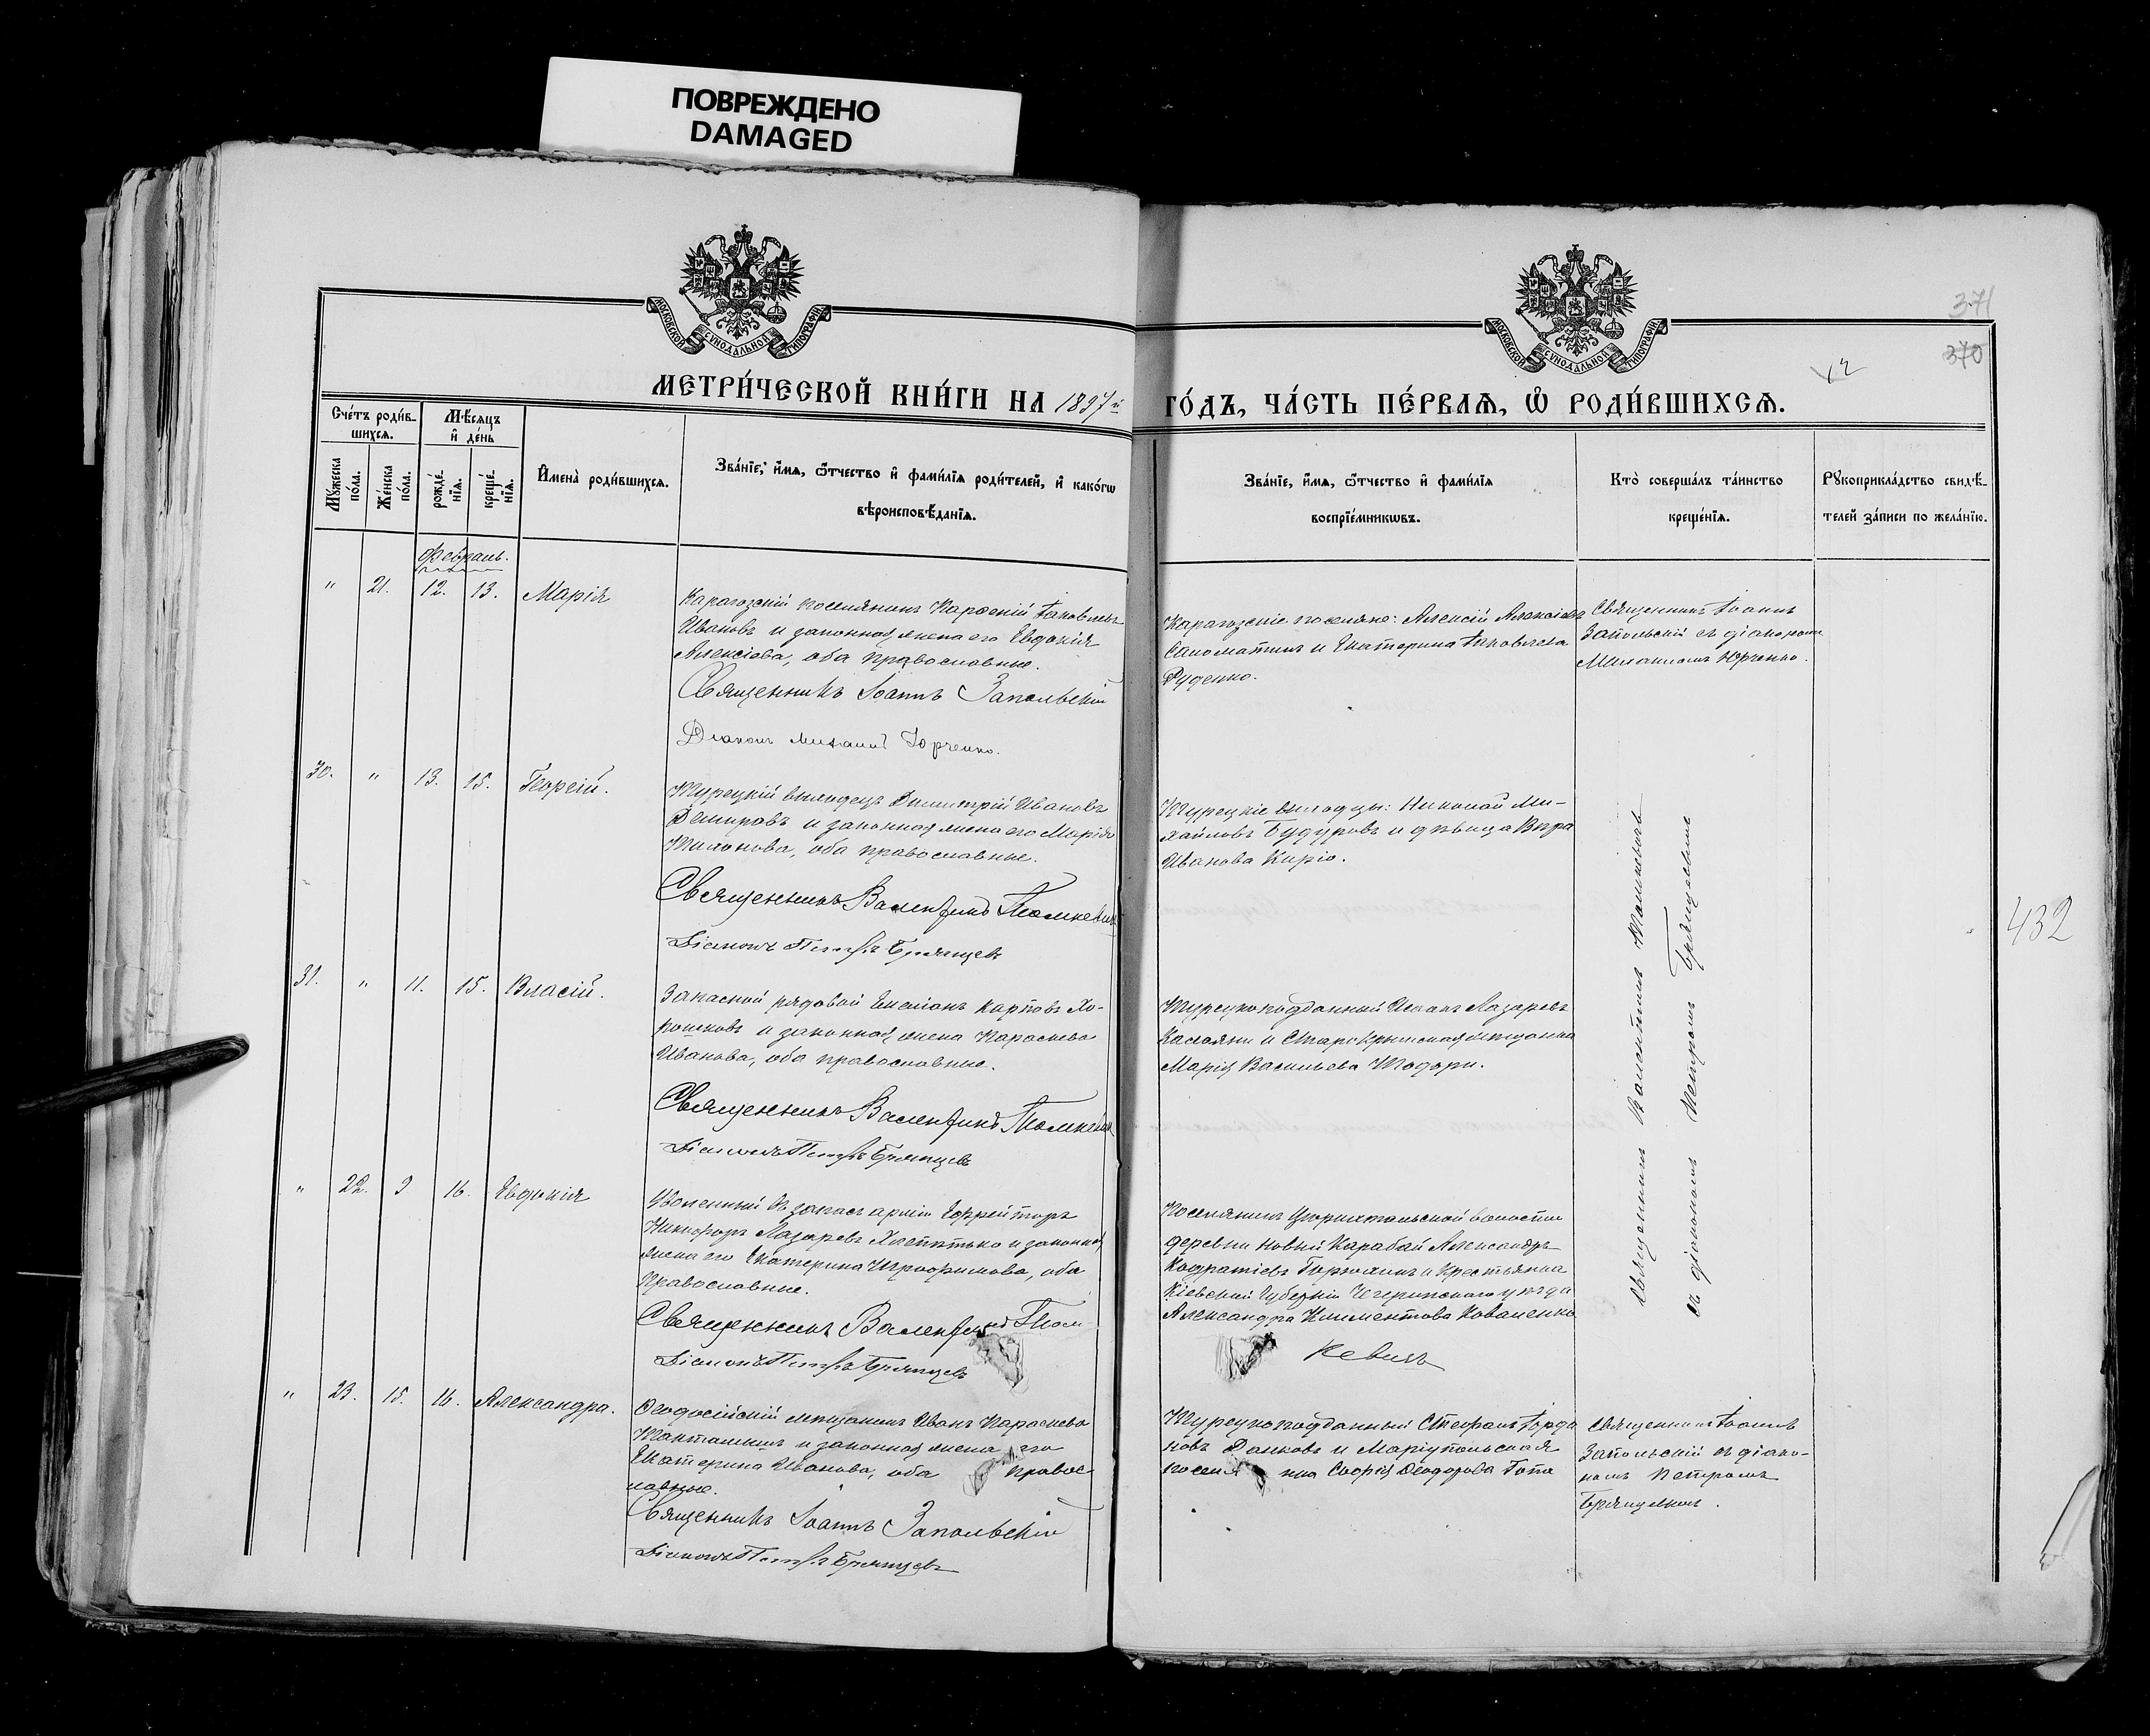 ПОВРЕЖДЕНО
DAMAGED
МОСКОВСКОЙ СѴНОДАЛЬНОЙ ТИПОГРАФІИ
МОСКОВСКОЙ СѴНОДАЛЬНОЙ ТИПОГРАФІИ
371
370
МЕТРИ́ЧЕСКОЙ КНИ́ГИ НА 1897й ГО́ДЪ, ЧА́СТЬ ПЕ́РВАѦ, Ѡ҆ РОДИ́ВШИХСѦ.
Сче́тъ роди́в-
шихсѧ.
Мѣ́сѧцъ
и҆ де́нь
Мꙋ́жеска по́ла.
Же́нска по́ла.
рожде́-
нїѧ.
креще́-
нїѧ.
И҆мена̀ роди́вшихсѧ.
Зва́нїе, и҆́мѧ, ѻ҆́тчество и҆ фами́лїѧ роди́телей, и҆ како́гѡ
вѣроисповѣ́данїѧ.
Зва́нїе, и҆́мѧ, ѻ҆́тчество и҆ фами́лїѧ
воспрїе́мникѡвъ.
Кто̀ соверша́лъ та́инство
креще́нїѧ.
Рꙋкоприкла́дство свидѣ́-
телей за́писи по жела́нїю.
Февраль.
" 21. 12. 13. Марія
Карагозскій поселянинъ Парѳеній Іаковлевъ
Ивановъ и законная жена его Евдокія
Алексіева, оба православные.
Священникъ Іоаннъ Запольскій
Діаконъ Михаилъ Юрченко.
Карагозскіе поселяне: Алексій Алексіевъ
Саломатинъ и Екатерина Іаковлева
Руденко.
Священникъ Іоаннъ
Запольскій съ діакономъ
Михаиломъ Юрченко.
30. " 13. 15. Георгій.
Турецкій выходецъ Димитрій Ивановъ
Демировъ и законная жена его Марія
Тихонова, оба православные.
Священникъ Валентинъ Томкевичъ
Діаконъ Петръ Брянцевъ
Турецкіе выходцы: Николай Ми-
хайловъ Будуровъ и дѣвица Вѣра
Иванова Киріо.
Священникъ Валентинъ Томкевичъ
съ діакономъ Петромъ Брянцевымъ
432
31. " 11. 15. Власій.
Запасной рядовой Емеліанъ Карповъ Хо-
и законная жена Параскева
Иванова, оба православные.
Священникъ Валентинъ Томкевичъ
Діаконъ Петръ Брянцевъ
Турецкоподданный Иванъ Лазаревъ
Калаяни и Старокрымская мѣщанка
Марія Васильева Тодори.
" 22. 9 16. Евдокія
Уволенный въ запасъ арміи Ефрейторъ
Никифоръ Лазаревъ и законная
жена его Екатерина Трофимова, оба
православные.
Священникъ Валентинъ Том
Діаконъ Петръ Брянцевъ
Поселянинъ Цюрихтальской волости
деревни Новый Карабай Александръ
и крестьянка
Кіевской губерніи Чигиринскаго уѣзда
Александра Климентова Коваленко
кевичъ
" 23. 15. 16. Александра.
Ѳеодосійскій мѣщанинъ Иванъ Параскева
и законная жена его
Екатерина Иванова, оба правос-
лавные.
Священникъ Іоаннъ Запольскій
Діаконъ Петръ Брянцевъ
Турецкоподданный Стефанъ Іорда
новъ Данковъ и Маріупольская
поселя нка Софія Ѳеодорова Гота
Священникъ Іоаннъ
Запольскій съ діако-
номъ Петромъ
Брянцевымъ.